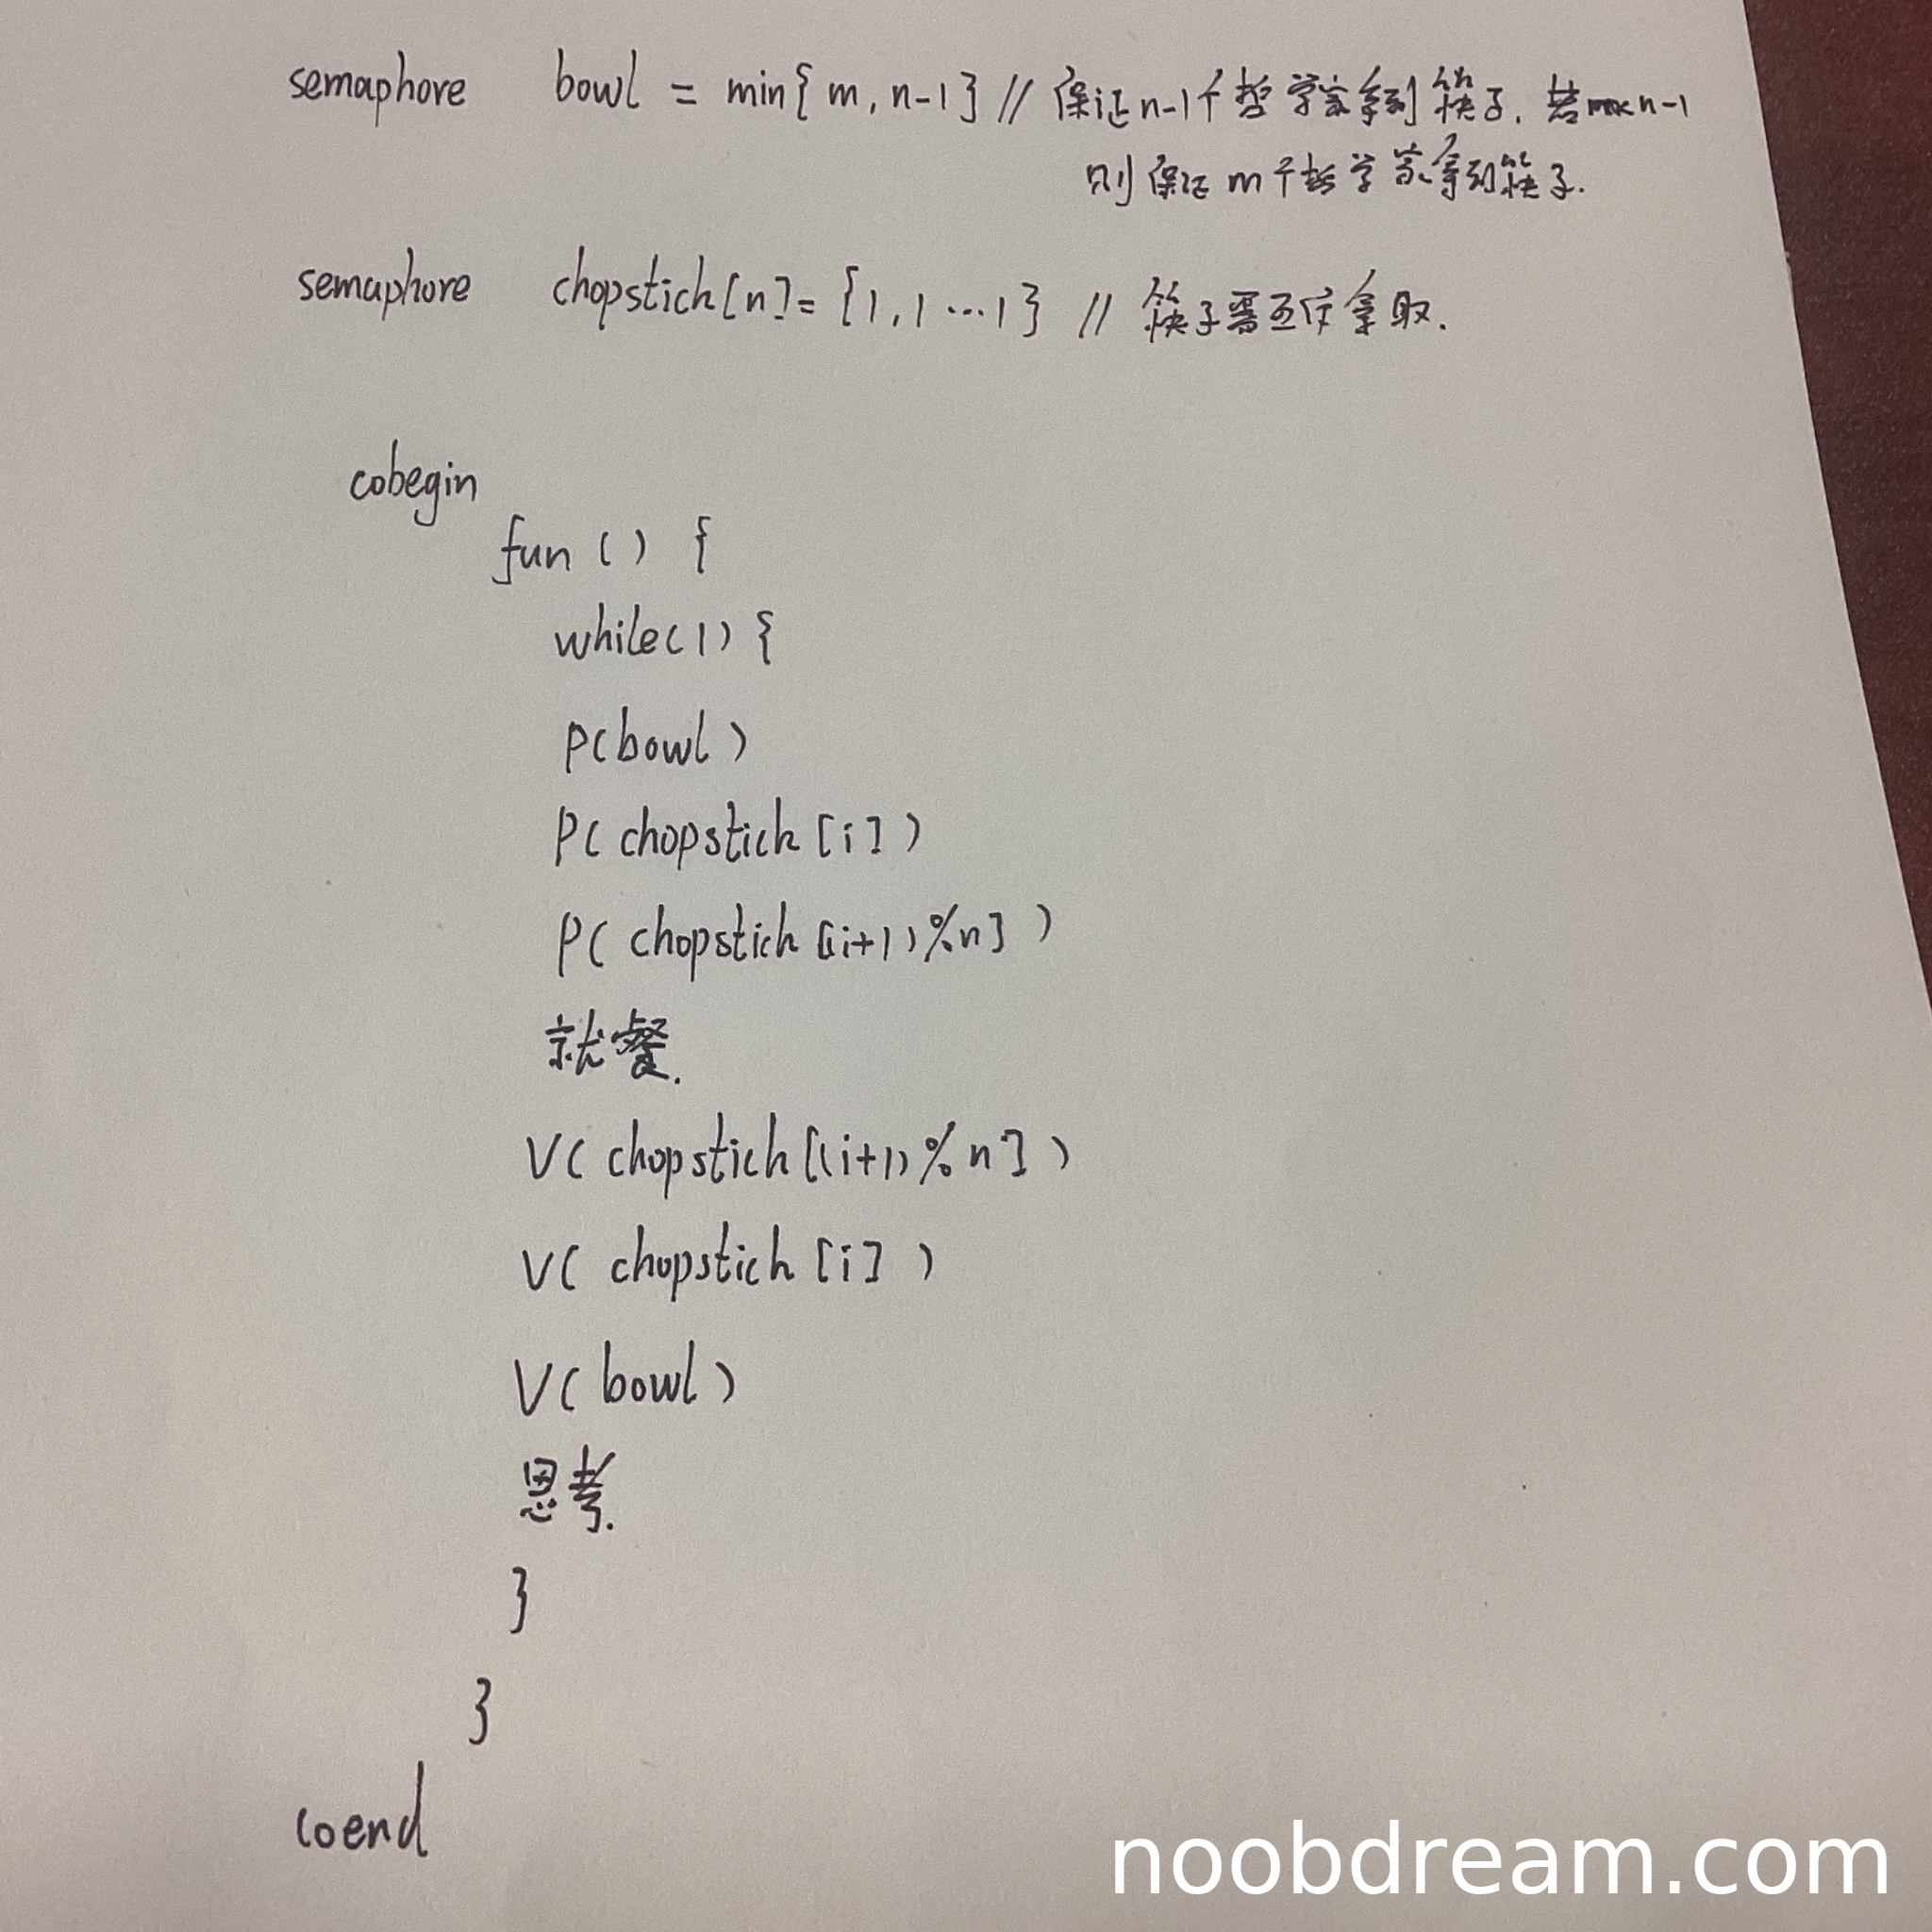 semaphore bowl = min{ m, n-1 } // 保证n-1个哲学家拿到筷子. 若m<n-1
则保证m个哲学家拿到筷子.
semaphore chopstick[n]= {1, 1 ...1} // 筷子需互斥拿取.
cobegin
fun ( ) {
while(1) {
P(bowl)
P( chopstick [i] )
P( chopstick [(i+1)%n] )
就餐.
V( chopstick [(i+1)%n] )
V( chopstick [i] )
V( bowl )
思考.
}
}
coend
noobdream.com